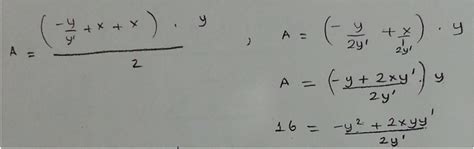 A = ((-y/y' + x + x) · y)/2 ; A = (-y/2y' + x/1) · y
2y'
A = ((-y + 2xy')/2y') y
16 = (-y² + 2xyy')/2y'